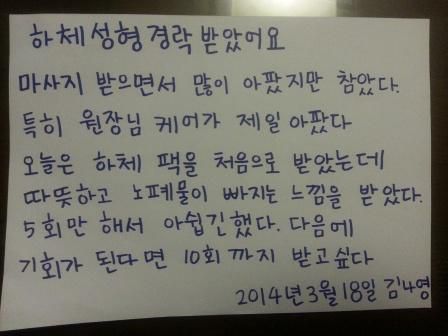 하체성형경락 받았어요
마사지 받으면서 많이 아팠지만 참았다.
특히 원장님 케어가 제일 아팠다
오늘은 하체 팩을 처음으로 받았는데
따뜻하고 노폐물이 빠지는 느낌을 받았다.
5회만 해서 아쉽긴했다. 다음에
기회가 된다면 10회까지 받고싶다
2014년 3월 18일 김ㄴ영